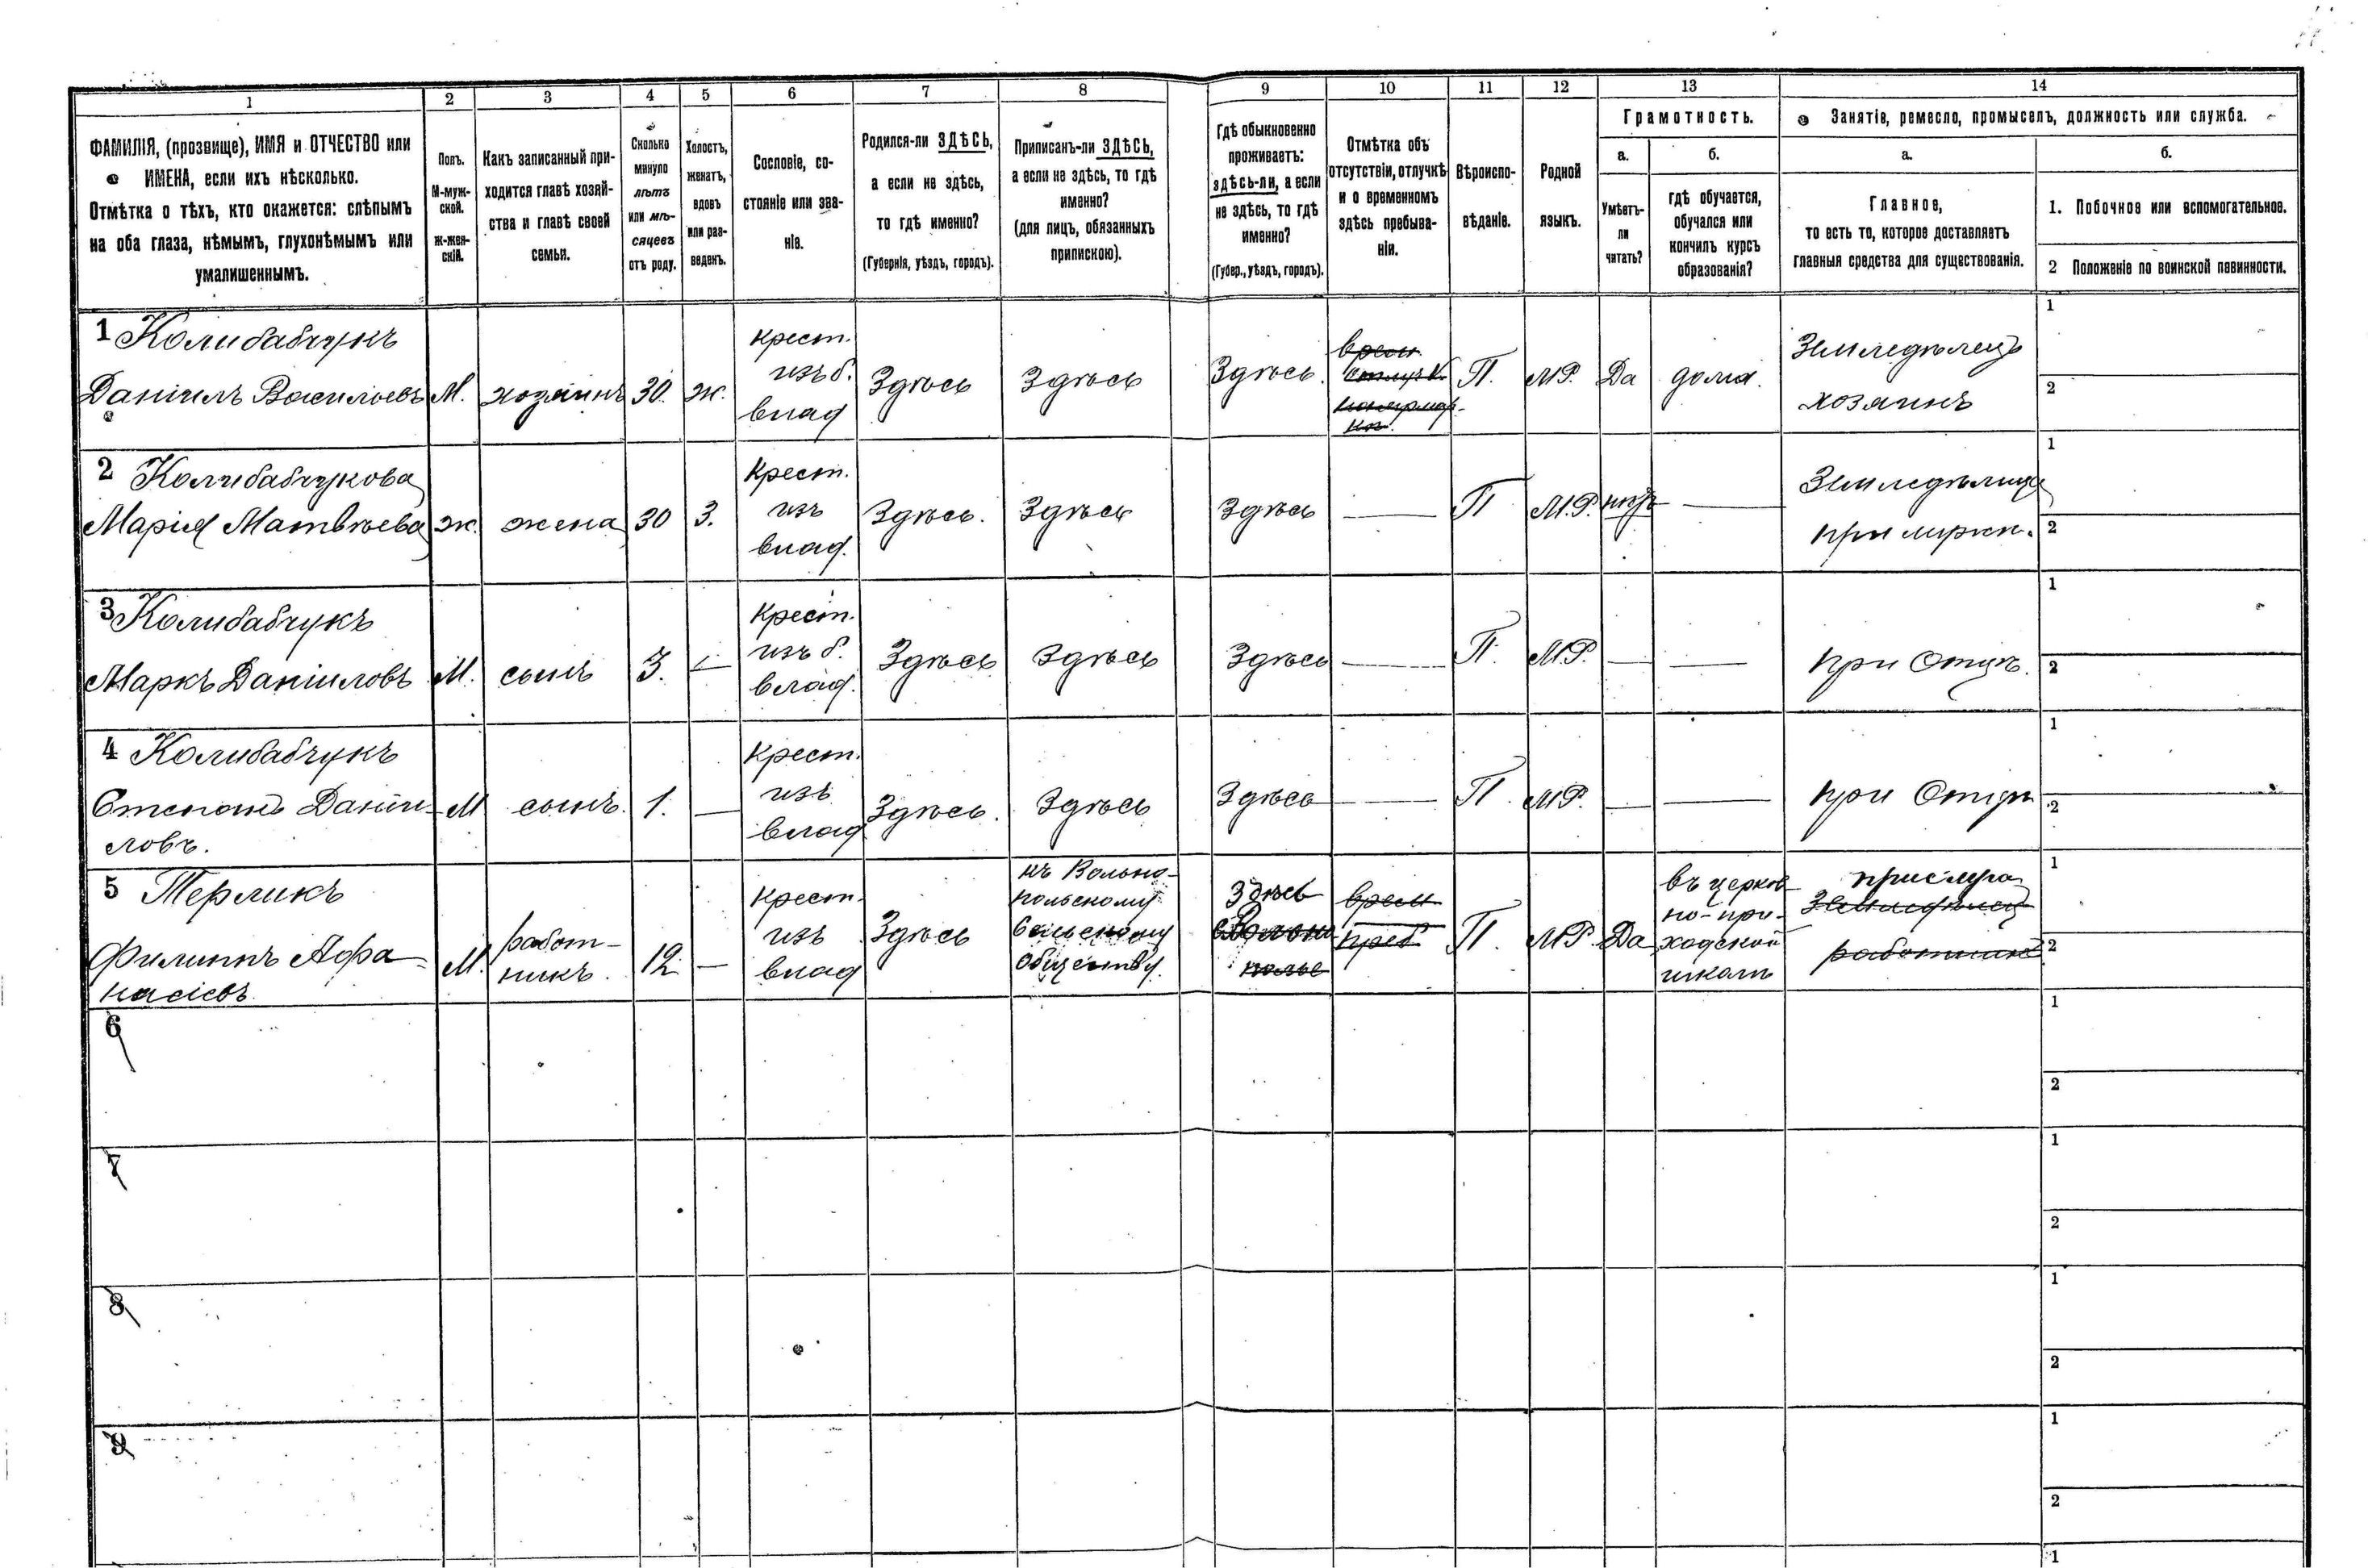 1
2
3
4
5
6
7
8
9
10
11
12
13
14
ФАМИЛІЯ, (прозвище), ИМЯ и ОТЧЕСТВО или
ИМЕНА, если ихъ нѣсколько.
Отмѣтка о тѣхъ, кто окажется: слѣпымъ
на оба глаза, нѣмымъ, глухонѣмымъ или
умалишеннымъ.
Полъ.
М-муж-
ской.
Ж-жен-
скій.
Какъ записанный при-
ходится главѣ хозяй-
ства и главѣ своей
семьи.
Сколько
минуло
лѣтъ
или мѣ-
сяцевъ
отъ роду.
Холостъ,
женатъ,
вдовъ
или раз-
веденъ.
Сословіе, со-
стояніе или зва-
ніе.
Родился-ли ЗДѢСЬ,
а если не здѣсь,
то гдѣ именно?
(Губернія, уѣздъ, городъ).
Приписанъ-ли ЗДѢСЬ,
а если не здѣсь, то гдѣ
именно?
(для лицъ, обязанныхъ
припискою).
Гдѣ обыкновенно
проживаетъ:
здѣсь-ли, а если
не здѣсь, то гдѣ
именно?
(Губер., уѣздъ, городъ).
Отмѣтка объ
отсутствіи, отлучкѣ
и о временномъ
здѣсь пребыва-
ніи.
Вѣроиспо-
вѣданіе.
Родной
языкъ.
Грамотность.
а.
Умѣетъ-
ли
читать?
б.
гдѣ обучается,
обучался или
кончилъ курсъ
образованія?
Занятіе, ремесло, промыселъ, должность или служба.
а.
Главное,
то есть то, которое доставляетъ
главныя средства для существованія.
б.
1. Побочное или вспомогательное.
2 Положеніе по воинской повинности.
1 Колибабчукъ
Даніилъ Васильевъ
М.
хозяинъ
30.
ж.
крест.
изъ б.
влад
Здѣсь
Здѣсь
Здѣсь.
врем.
отлуч.
П.
МР.
Да
дома.
Земледѣлецъ
хозяинъ
1
2
2 Колибабчукова
Марія Матвѣева
ж.
жена
30
З.
Крест.
изъ
влад.
Здѣсь.
Здѣсь
Здѣсь
—
П
М.Р.
нѣтъ
—
при мужѣ.
1
2
3 Колибабчукъ
Маркъ Даніиловъ
М.
сынъ
3.
—
Крест.
изъ б.
влад.
Здѣсь
Здѣсь
Здѣсь
—
П.
М.Р.
—
—
при Отцѣ.
1
2
4 Колибабчукъ
Степанъ Даніи-
ловъ.
М
сынъ.
1.
—
Крест.
изъ
влад
Здѣсь.
Здѣсь
Здѣсь
—
П.
МР.
—
—
при Отцѣ
1
2
5 Терликъ
Филиппъ Афа-
насіевъ
М.
работ-
никъ.
12
—
крест.
изъ
влад
Здѣсь
къ Вольно-
польскому
Сельскому
Обществу.
Здѣсь
полье
врем
преб
П.
МР.
Да
въ церков-
но-при-
ходской
школѣ
прислуга
Земледѣлец
работникъ
1
2
6
1
2
7
1
2
8
1
2
9
1
2
1